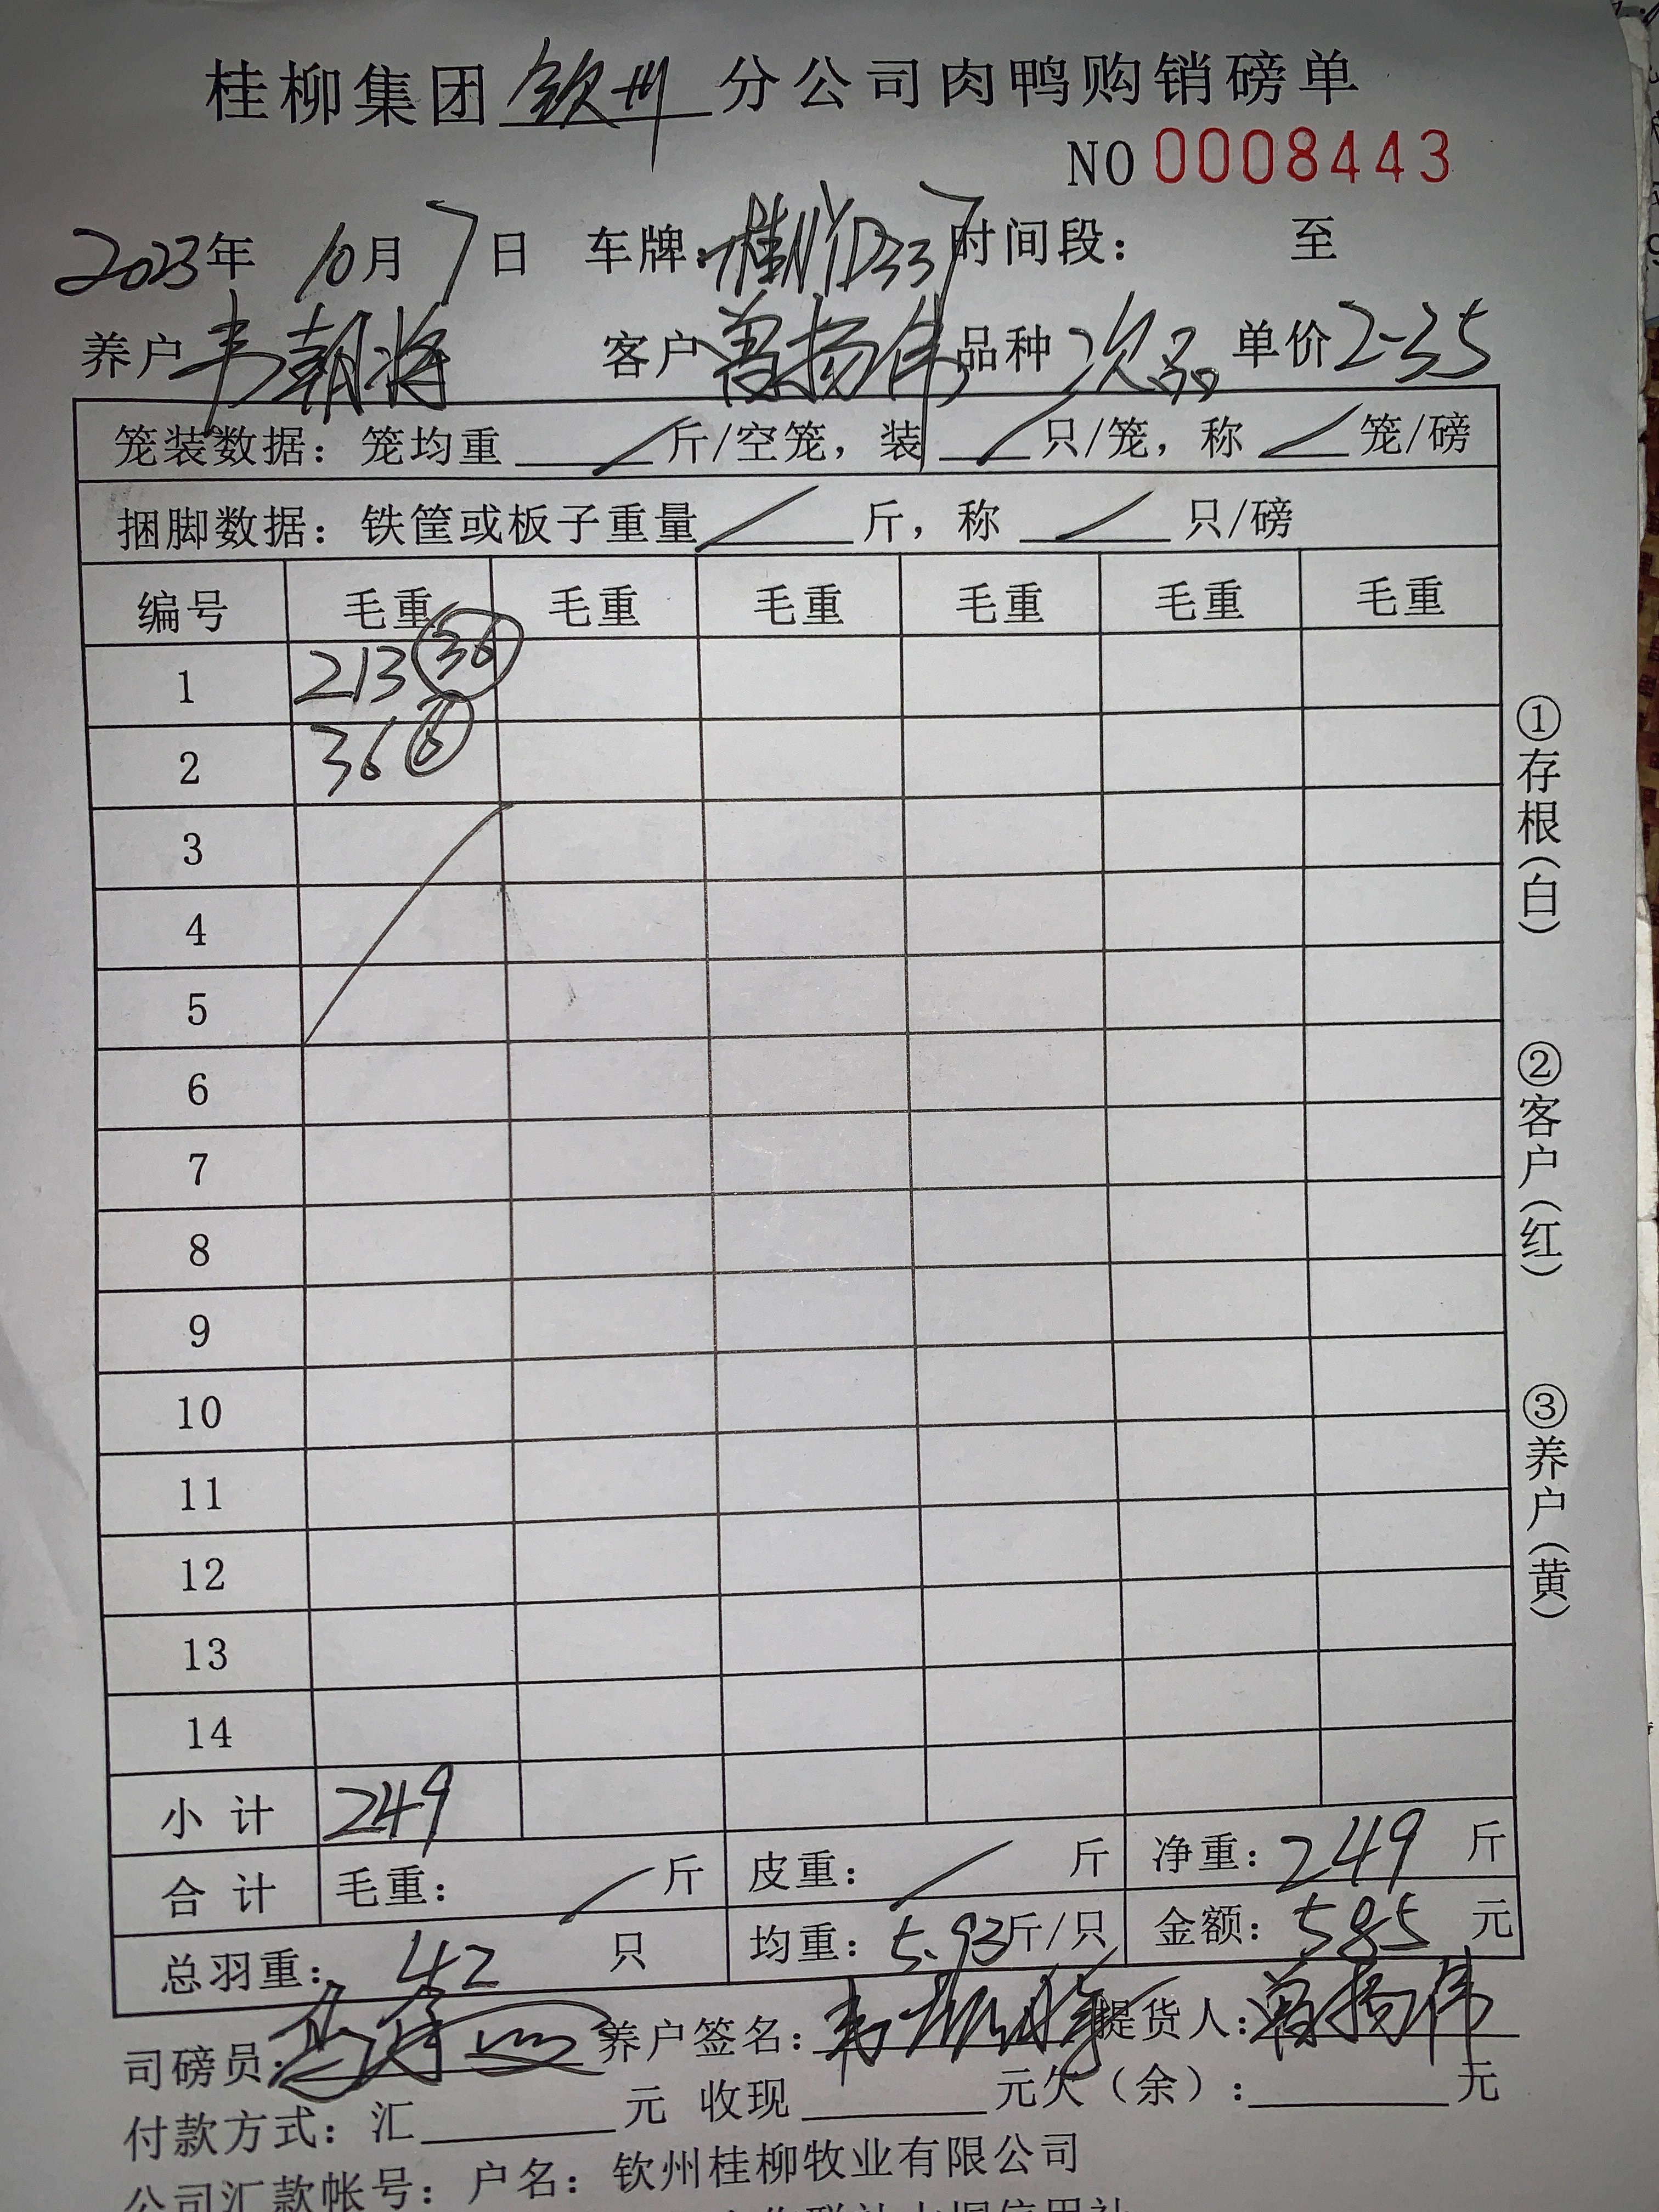 桂柳集团钦州分公司肉鸭购销磅单
NO 0008443
2023年 10月 7日 车牌: 时间段: 至
养户韦朝将 客户曾扬伟 品种 次品 单价2-35
笼装数据: 笼均重 / 斤/空笼, 装 / 只/笼, 称 / 笼/磅
捆脚数据: 铁筐或板子重量 / 斤, 称 / 只/磅
编号 毛重 毛重 毛重 毛重 毛重 毛重
1 213 36
2 36 6
3
4
5
6
7
8
9
10
11
12
13
14
小计 249
合计 毛重: / 斤 皮重: / 斤 净重: 249 斤
总羽重: 42 只 均重: 5.93斤/只 金额: 585 元
司磅员: 养户签名: 韦 提货人: 曾扬伟
付款方式: 汇 元 收现 元欠(余): 元
公司汇款帐号: 户名: 钦州桂柳牧业有限公司
①存根(白)
②客户(红)
③养户(黄)